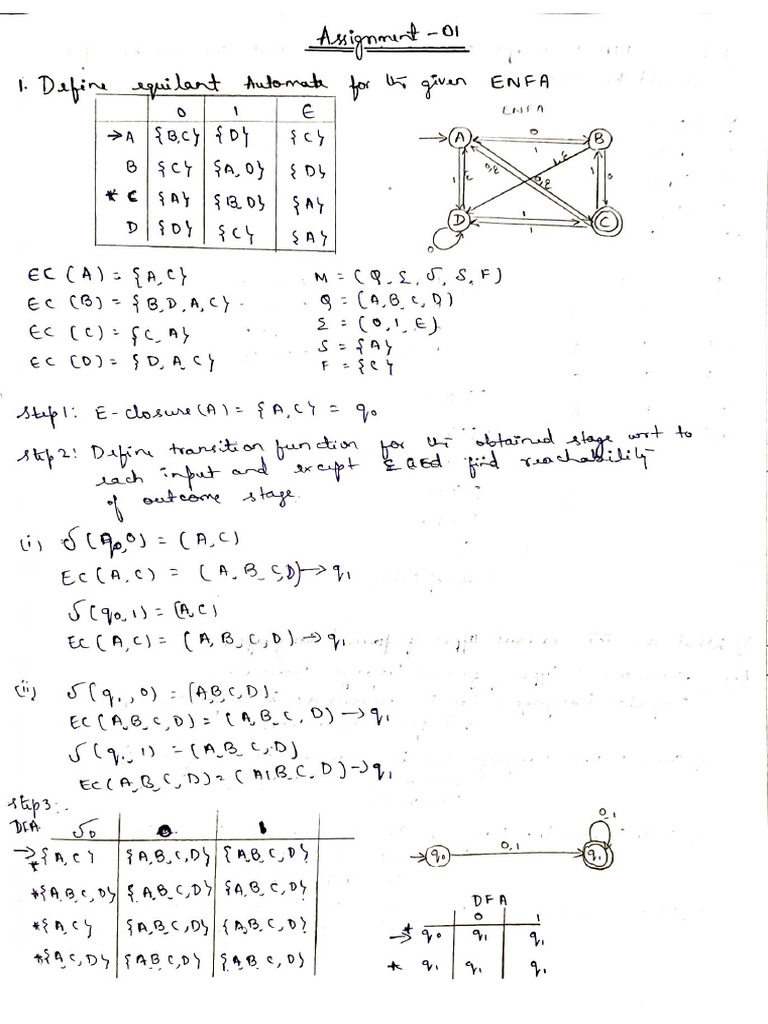 Assignment - 01
1. Define equilant Automata for the given ENFA
0 1 E
→A {B,C} {D} {C}
B {C} {A,D} {D}
* C {A} {B,D} {A}
D {D} {C} {A}
ENFA
A 0 B
1
1 ε 0,ε 0,ε 1,ε 1 0
D 1 C
1
0
EC (A) = {A,C}
EC (B) = {B,D,A,C}
EC (C) = {C,A}
EC (D) = {D,A,C}
M = (Q, Σ, δ, S, F)
Q = (A,B,C,D)
Σ = (0,1,E)
S = {A}
F = {C}
Step1: E-closure(A) = {A,C} = q0
Step2: Define transition function for the obtained stage wrt to
each input and except find reachability
of outcome stage.
(i) δ(q0,0) = (A,C)
EC(A,C) = (A,B,C,D) → q1
δ(q0,1) = (A,C)
EC(A,C) = (A,B,C,D) → q1
(ii) δ(q1,0) = (A,B,C,D)
EC(A,B,C,D) = (A,B,C,D) → q1
δ(q1,1) = (A,B,C,D)
EC(A,B,C,D) = (A,B,C,D) → q1
Step3:
DFA δ0 0 1
→* {A,C} {A,B,C,D} {A,B,C,D}
*{A,B,C,D} {A,B,C,D} {A,B,C,D}
*{A,C} {A,B,C,D} {A,B,C,D}
*{A,C,D} {A,B,C,D} {A,B,C,D}
0,1
→ q0 0,1 q1
DFA
0 1
→* q0 q1 q1
* q1 q1 q1